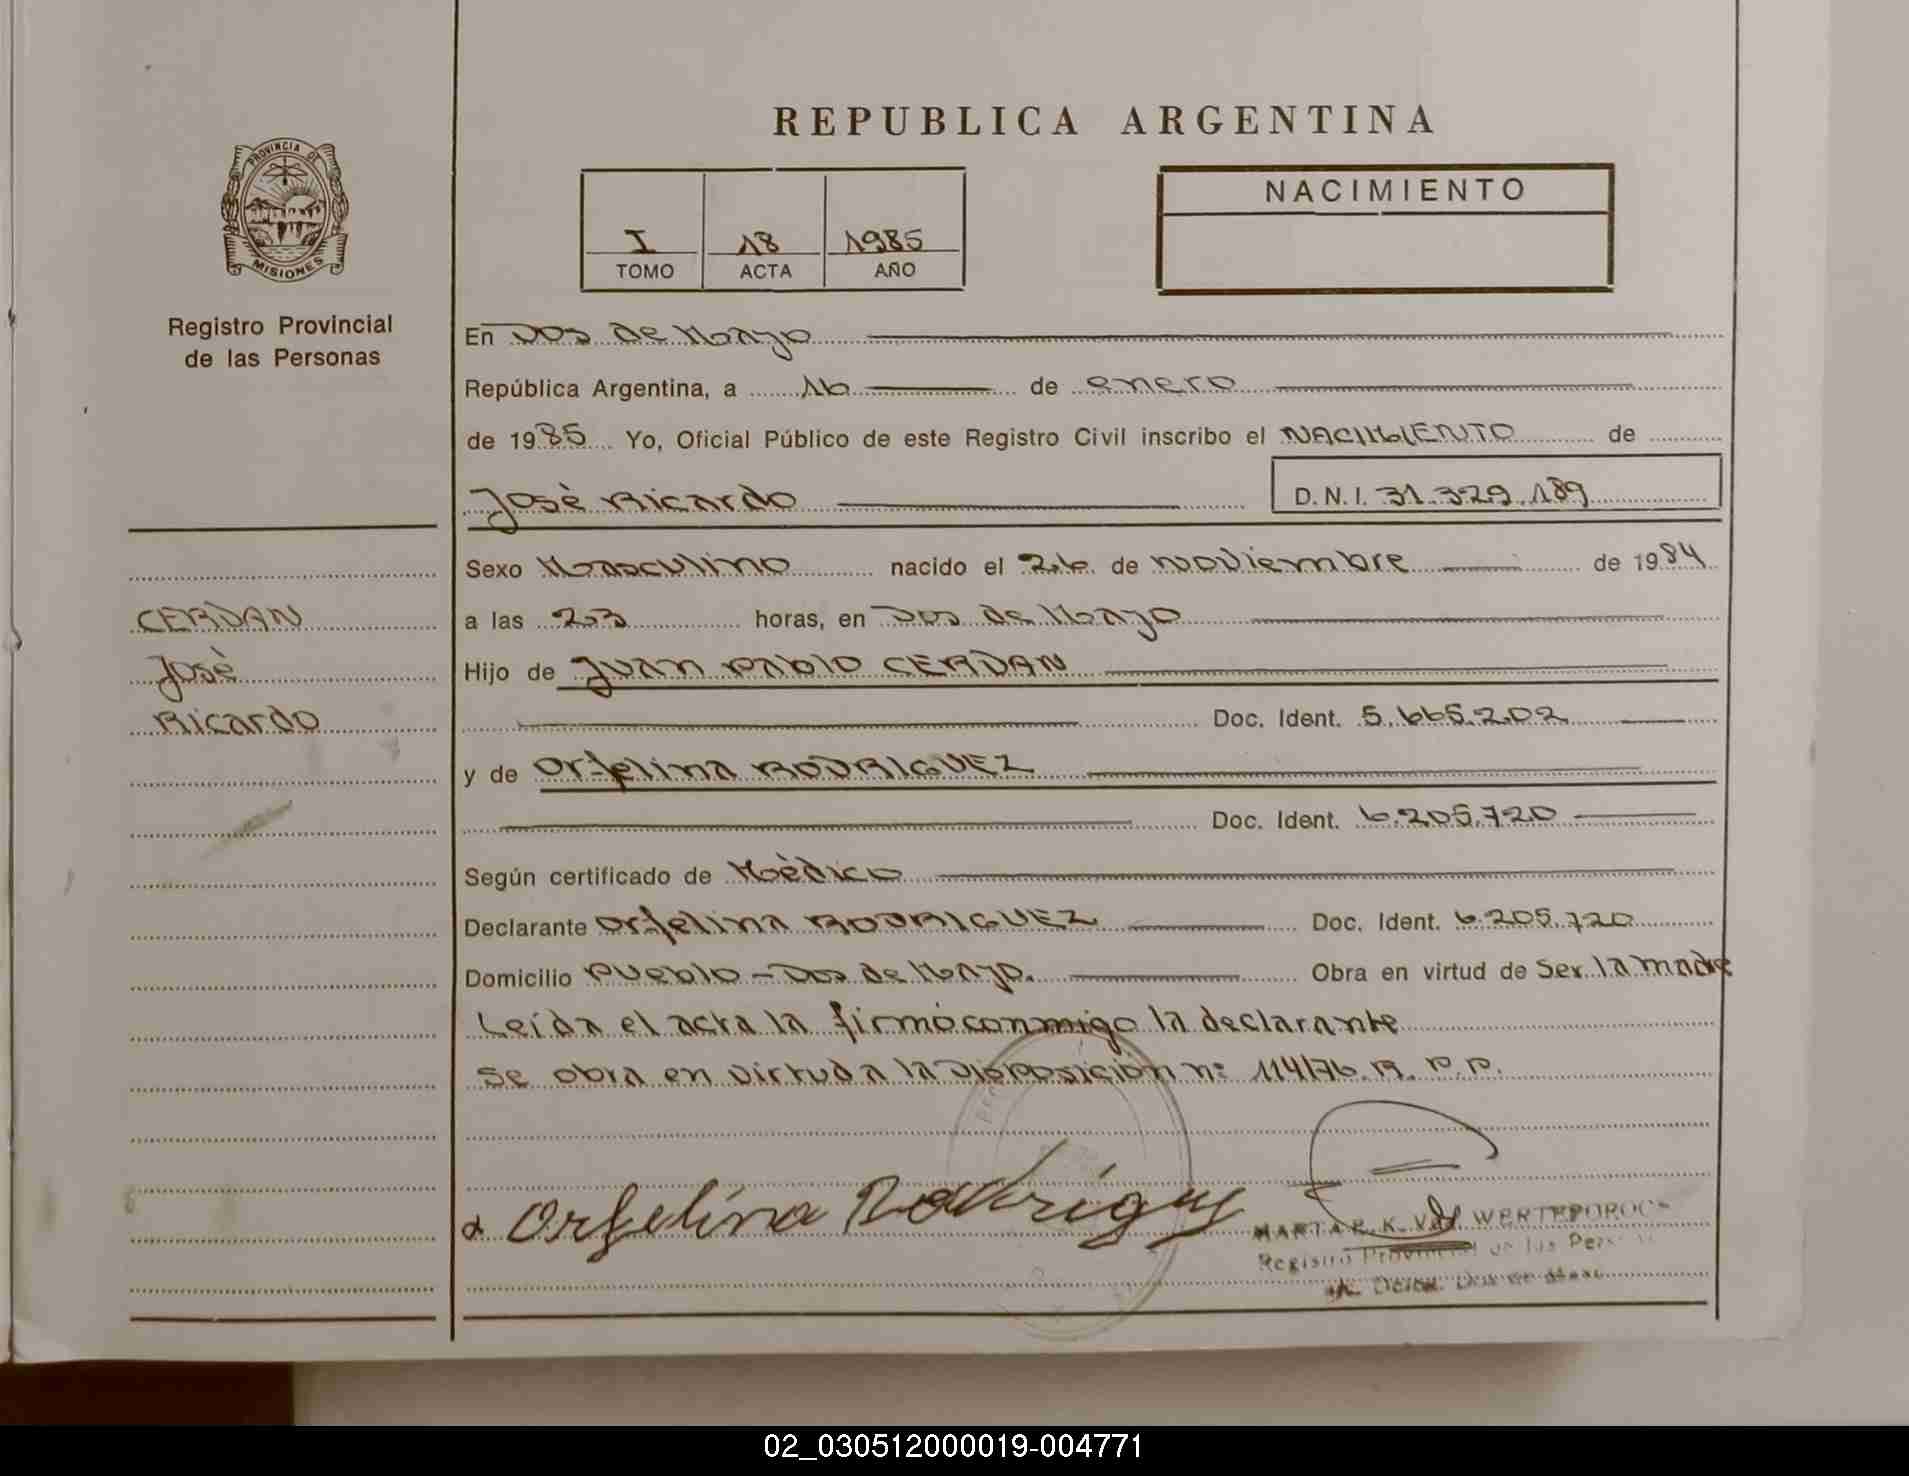 REPUBLICA ARGENTINA
PROVINCIA DE
MISIONES
Registro Provincial
de las Personas
I 18 1985
TOMO ACTA AÑO
NACIMIENTO
En Dos de Mayo
República Argentina, a 16 de enero
de 1985 Yo, Oficial Público de este Registro Civil inscribo el NACIMIENTO de
Josè Ricardo D.N.I. 31.329.189
Sexo Masculino nacido el 26 de noviembre de 1984
CERDAN
a las 23 horas, en Dos de Mayo
Josè
Hijo de Juan Pablo CERDAN
Ricardo
Doc. Ident. 5.665.202
y de Orfelina RODRIGUEZ
Doc. Ident. 6.205.720
Según certificado de Mèdico
Declarante Orfelina RODRIGUEZ Doc. Ident. 6.205.720
Domicilio Pueblo - Dos de Mayo. Obra en virtud de Ser la madre
Leída el acta la firmó conmigo la declarante
se obra en virtud a la Disposición nº 114/76. R. P. P.
Orfelina Rodriguez
MARTA R. K. WERTEPOROC
Registro Provincial de las
Dos de Mayo
02_030512000019-004771